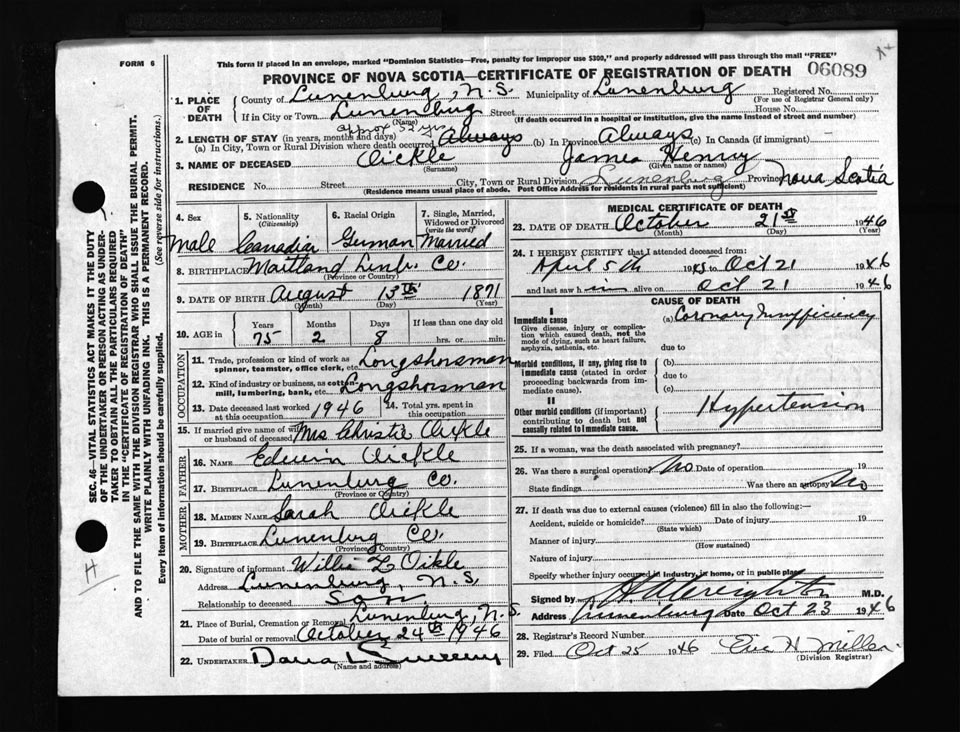 FORM 6
This form if placed in an envelope, marked "Dominion Statistics—Free, penalty for improper use $300," and properly addressed will pass through the mail "FREE"
PROVINCE OF NOVA SCOTIA—CERTIFICATE OF REGISTRATION OF DEATH
06089
1. PLACE OF DEATH
County of Lunenburg, N.S. Municipality of Lunenburg Registered No.
(For use of Registrar General only)
If in City or Town Lunenburg Street House No.
(Name) (If death occurred in a hospital or institution, give the name instead of street and number)
approx 52 yrs
2. LENGTH OF STAY (in years, months and days)
(a) In City, Town or Rural Division where death occurred Always (b) In Province Always (c) In Canada (if immigrant)
3. NAME OF DECEASED Oickle James Henry
(Surname) (Given name or names)
RESIDENCE No. Street City, Town or Rural Division Lunenburg Province Nova Scotia
(Residence means usual place of abode. Post Office Address for residents in rural parts not sufficient)
4. Sex
Male
5. Nationality (Citizenship)
Canadian
6. Racial Origin
German
7. Single, Married, Widowed or Divorced (write the word)
Married
8. BIRTHPLACE Maitland Lunb. Co.
9. DATE OF BIRTH August 13th 1871
(Month) (Day) (Year)
10. AGE in
Years Months Days If less than one day old
75 2 8 hrs. or min.
OCCUPATION
11. Trade, profession or kind of work as spinner, teamster, office clerk, etc. Longshorsman
12. Kind of industry or business, as cotton mill, lumbering, bank, etc. Longshorsman
13. Date deceased last worked at this occupation 1946
14. Total yrs. spent in this occupation
15. If married give name of wife or husband of deceased Mrs Christie Oickle
FATHER
16. NAME Edwin Oickle
17. BIRTHPLACE Lunenburg Co.
(Province or Country)
MOTHER
18. MAIDEN NAME Sarah Oickle
19. BIRTHPLACE Lunenburg Co.
(Province or Country)
20. Signature of informant Willie L Oikle
Address Lunenburg, N.S.
Relationship to deceased Son
21. Place of Burial, Cremation or Removal Lunenburg, N.S.
Date of burial or removal October 24th 1946
22. UNDERTAKER Dana L Sweeny
(Name and address)
MEDICAL CERTIFICATE OF DEATH
23. DATE OF DEATH October 21st 1946
(Month) (Day) (Year)
24. I HEREBY CERTIFY that I attended deceased from:
April 5th 1945 to Oct 21 1946
and last saw him alive on Oct 21 1946
CAUSE OF DEATH
I
Immediate cause
Give disease, injury or complication which caused death, not the mode of dying, such as heart failure, asphyxia, asthenia, etc.
(a) Coronary Insufficiency
due to
Morbid conditions, if any, giving rise to immediate cause (stated in order proceeding backwards from immediate cause).
(b)
due to
(c)
II
Other morbid conditions (if important) contributing to death but not causally related to immediate cause.
Hypertension
25. If a woman, was the death associated with pregnancy?
26. Was there a surgical operation? No Date of operation 19
State findings Was there an autopsy No
27. If death was due to external causes (violence) fill in also the following:—
Accident, suicide or homicide? Date of injury 19
(State which)
Manner of injury
(How sustained)
Nature of injury
Specify whether injury occurred in industry, in home, or in public place
Signed by Creighton M.D.
Address Lunenburg Date Oct 23 1946
28. Registrar's Record Number
29. Filed Oct 25 1946 H Miller
(Division Registrar)
SEC. 46—VITAL STATISTICS ACT MAKES IT THE DUTY
OF THE UNDERTAKER OR PERSON ACTING AS UNDER-
TAKER TO OBTAIN ALL THE PARTICULARS REQUIRED
IN THE "CERTIFICATE OF REGISTRATION OF DEATH"
AND TO FILE THE SAME WITH THE DIVISION REGISTRAR WHO SHALL ISSUE THE BURIAL PERMIT.
WRITE PLAINLY WITH UNFADING INK. THIS IS A PERMANENT RECORD.
Every item of information should be carefully supplied. (See reverse side for instructions.)
H